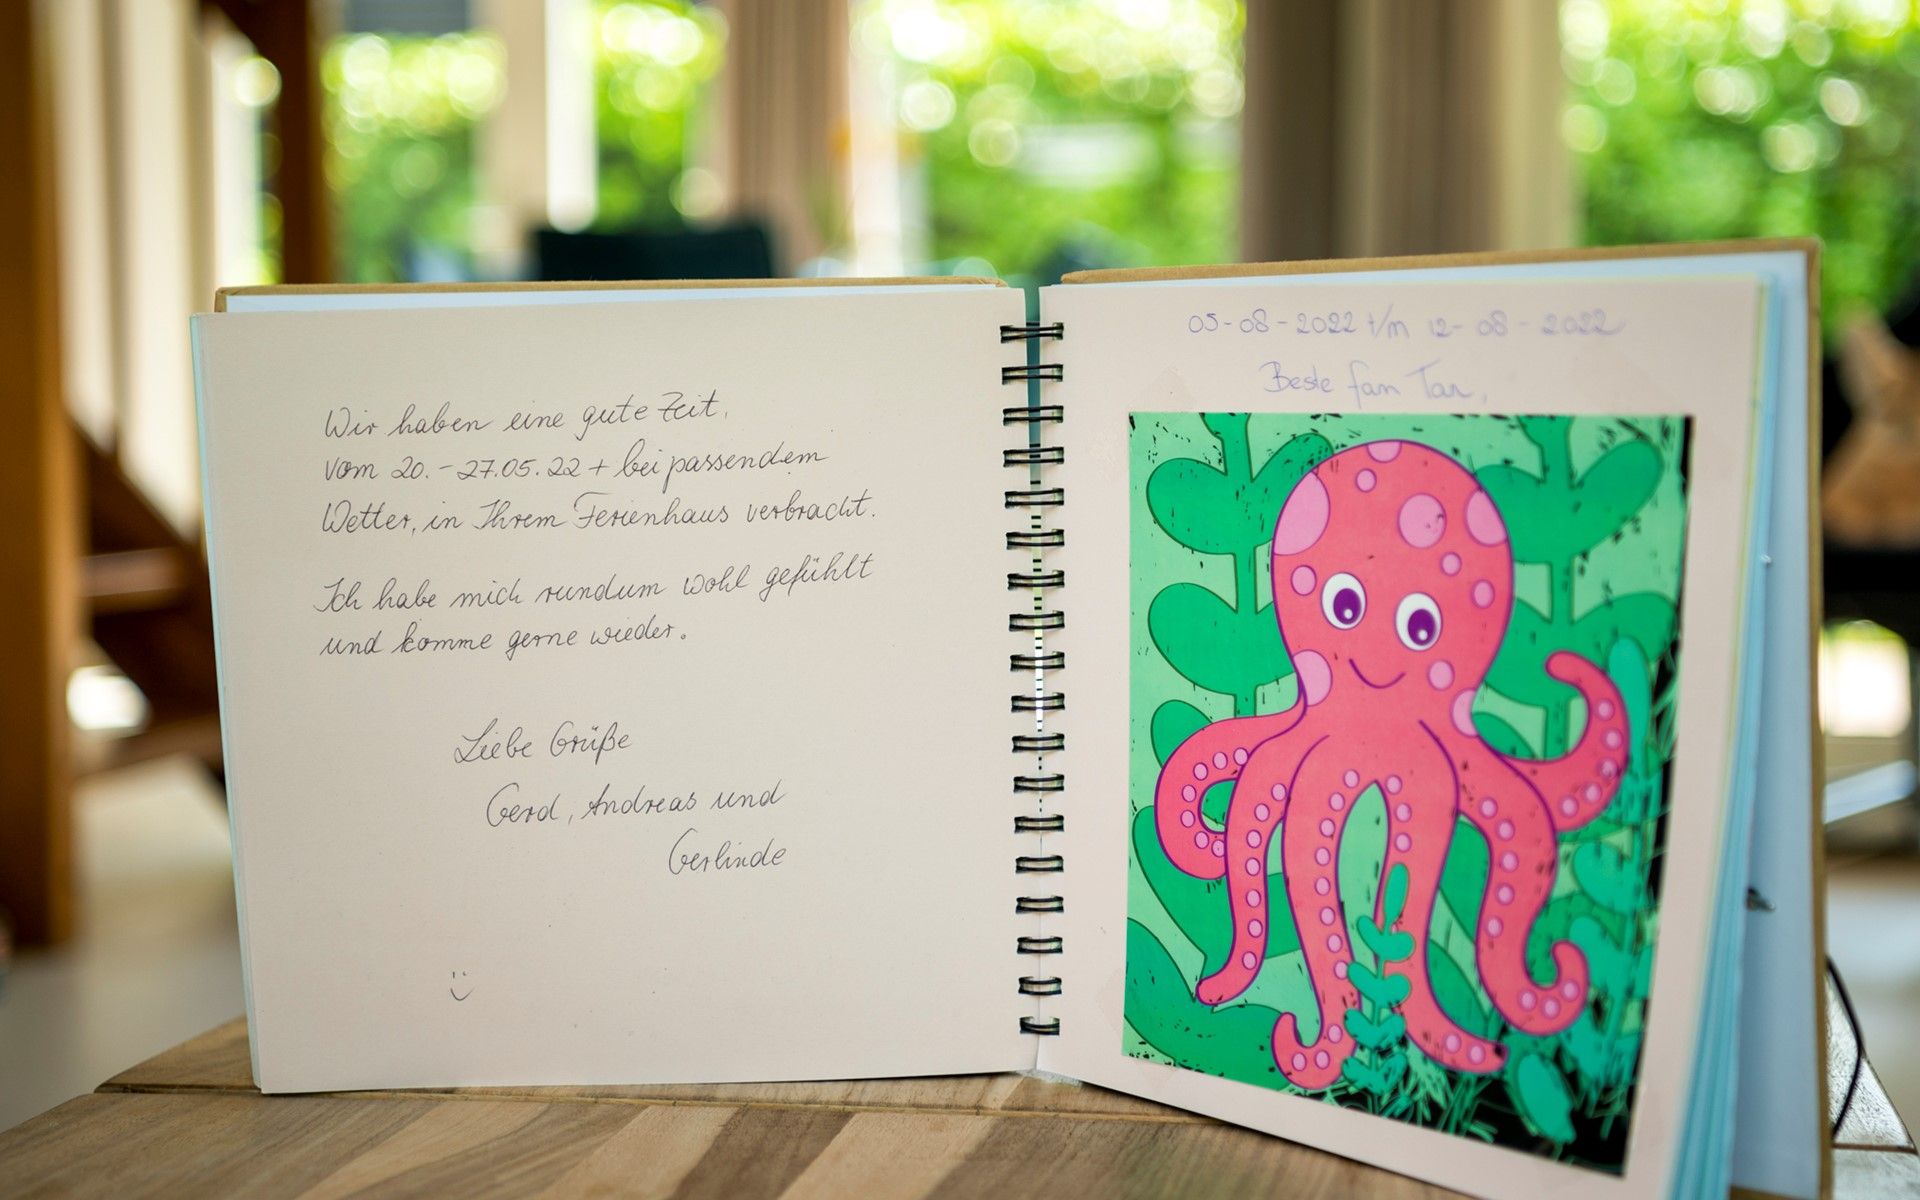 Wir haben eine gute Zeit,
vom 20.-27.05.22 + bei passendem
Wetter, in Ihrem Ferienhaus verbracht.
Ich habe mich rundum wohl gefühlt
und komme gerne wieder.
Liebe Grüße
Gerd, Andreas und
Gerlinde
05-08-2022 t/m 12-08-2022
Beste fam Tan,